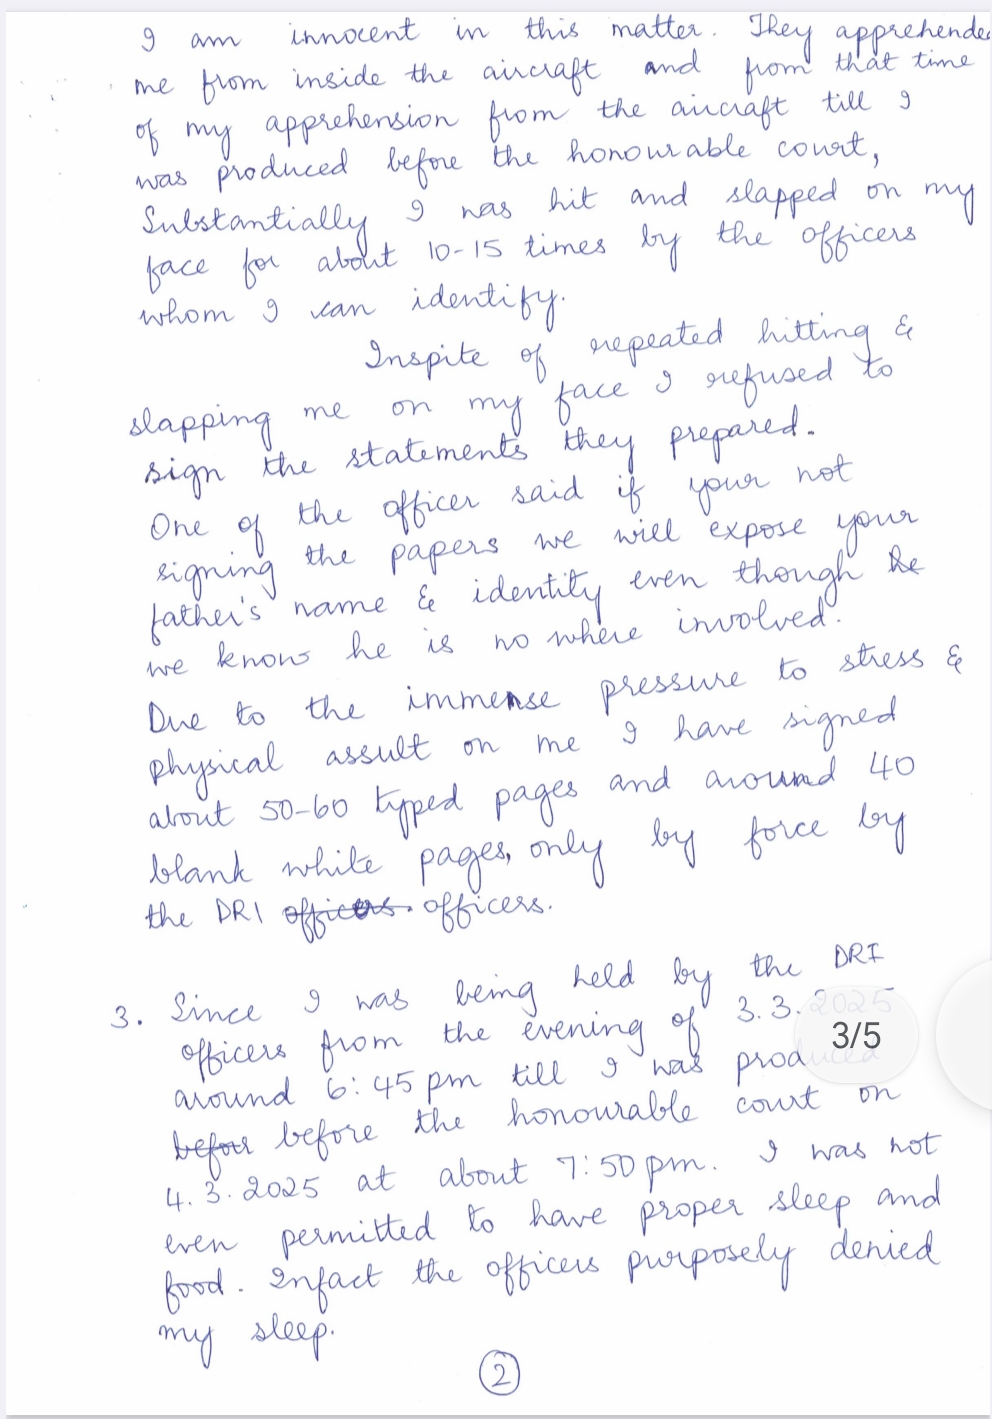 I am innocent in this matter. They apprehende
me from inside the aircraft and from that time
of my apprehension from the aircraft till I
was produced before the honourable court,
Substantially I was hit and slapped on my
face for about 10-15 times by the officers
whom I can identify.
Inspite of repeated hitting &
slapping me on my face I refused to
sign the statements they prepared.
One of the officer said if your not
signing the papers we will expose your
father's name & identity even though he
we know he is no where involved.
Due to the immense pressure to stress &
physical assult on me I have signed
about 50-60 typed pages and around 40
blank white pages, only by force by
the DRI officers. officers.
3. Since I was being held by the DRI
officers from the evening of 3.3.2025
around 6:45 pm till I was produced
befour before the honourable court on
4.3.2025 at about 7:50 pm. I was not
even permitted to have proper sleep and
food. Infact the officers purposely denied
my sleep.
2
3/5